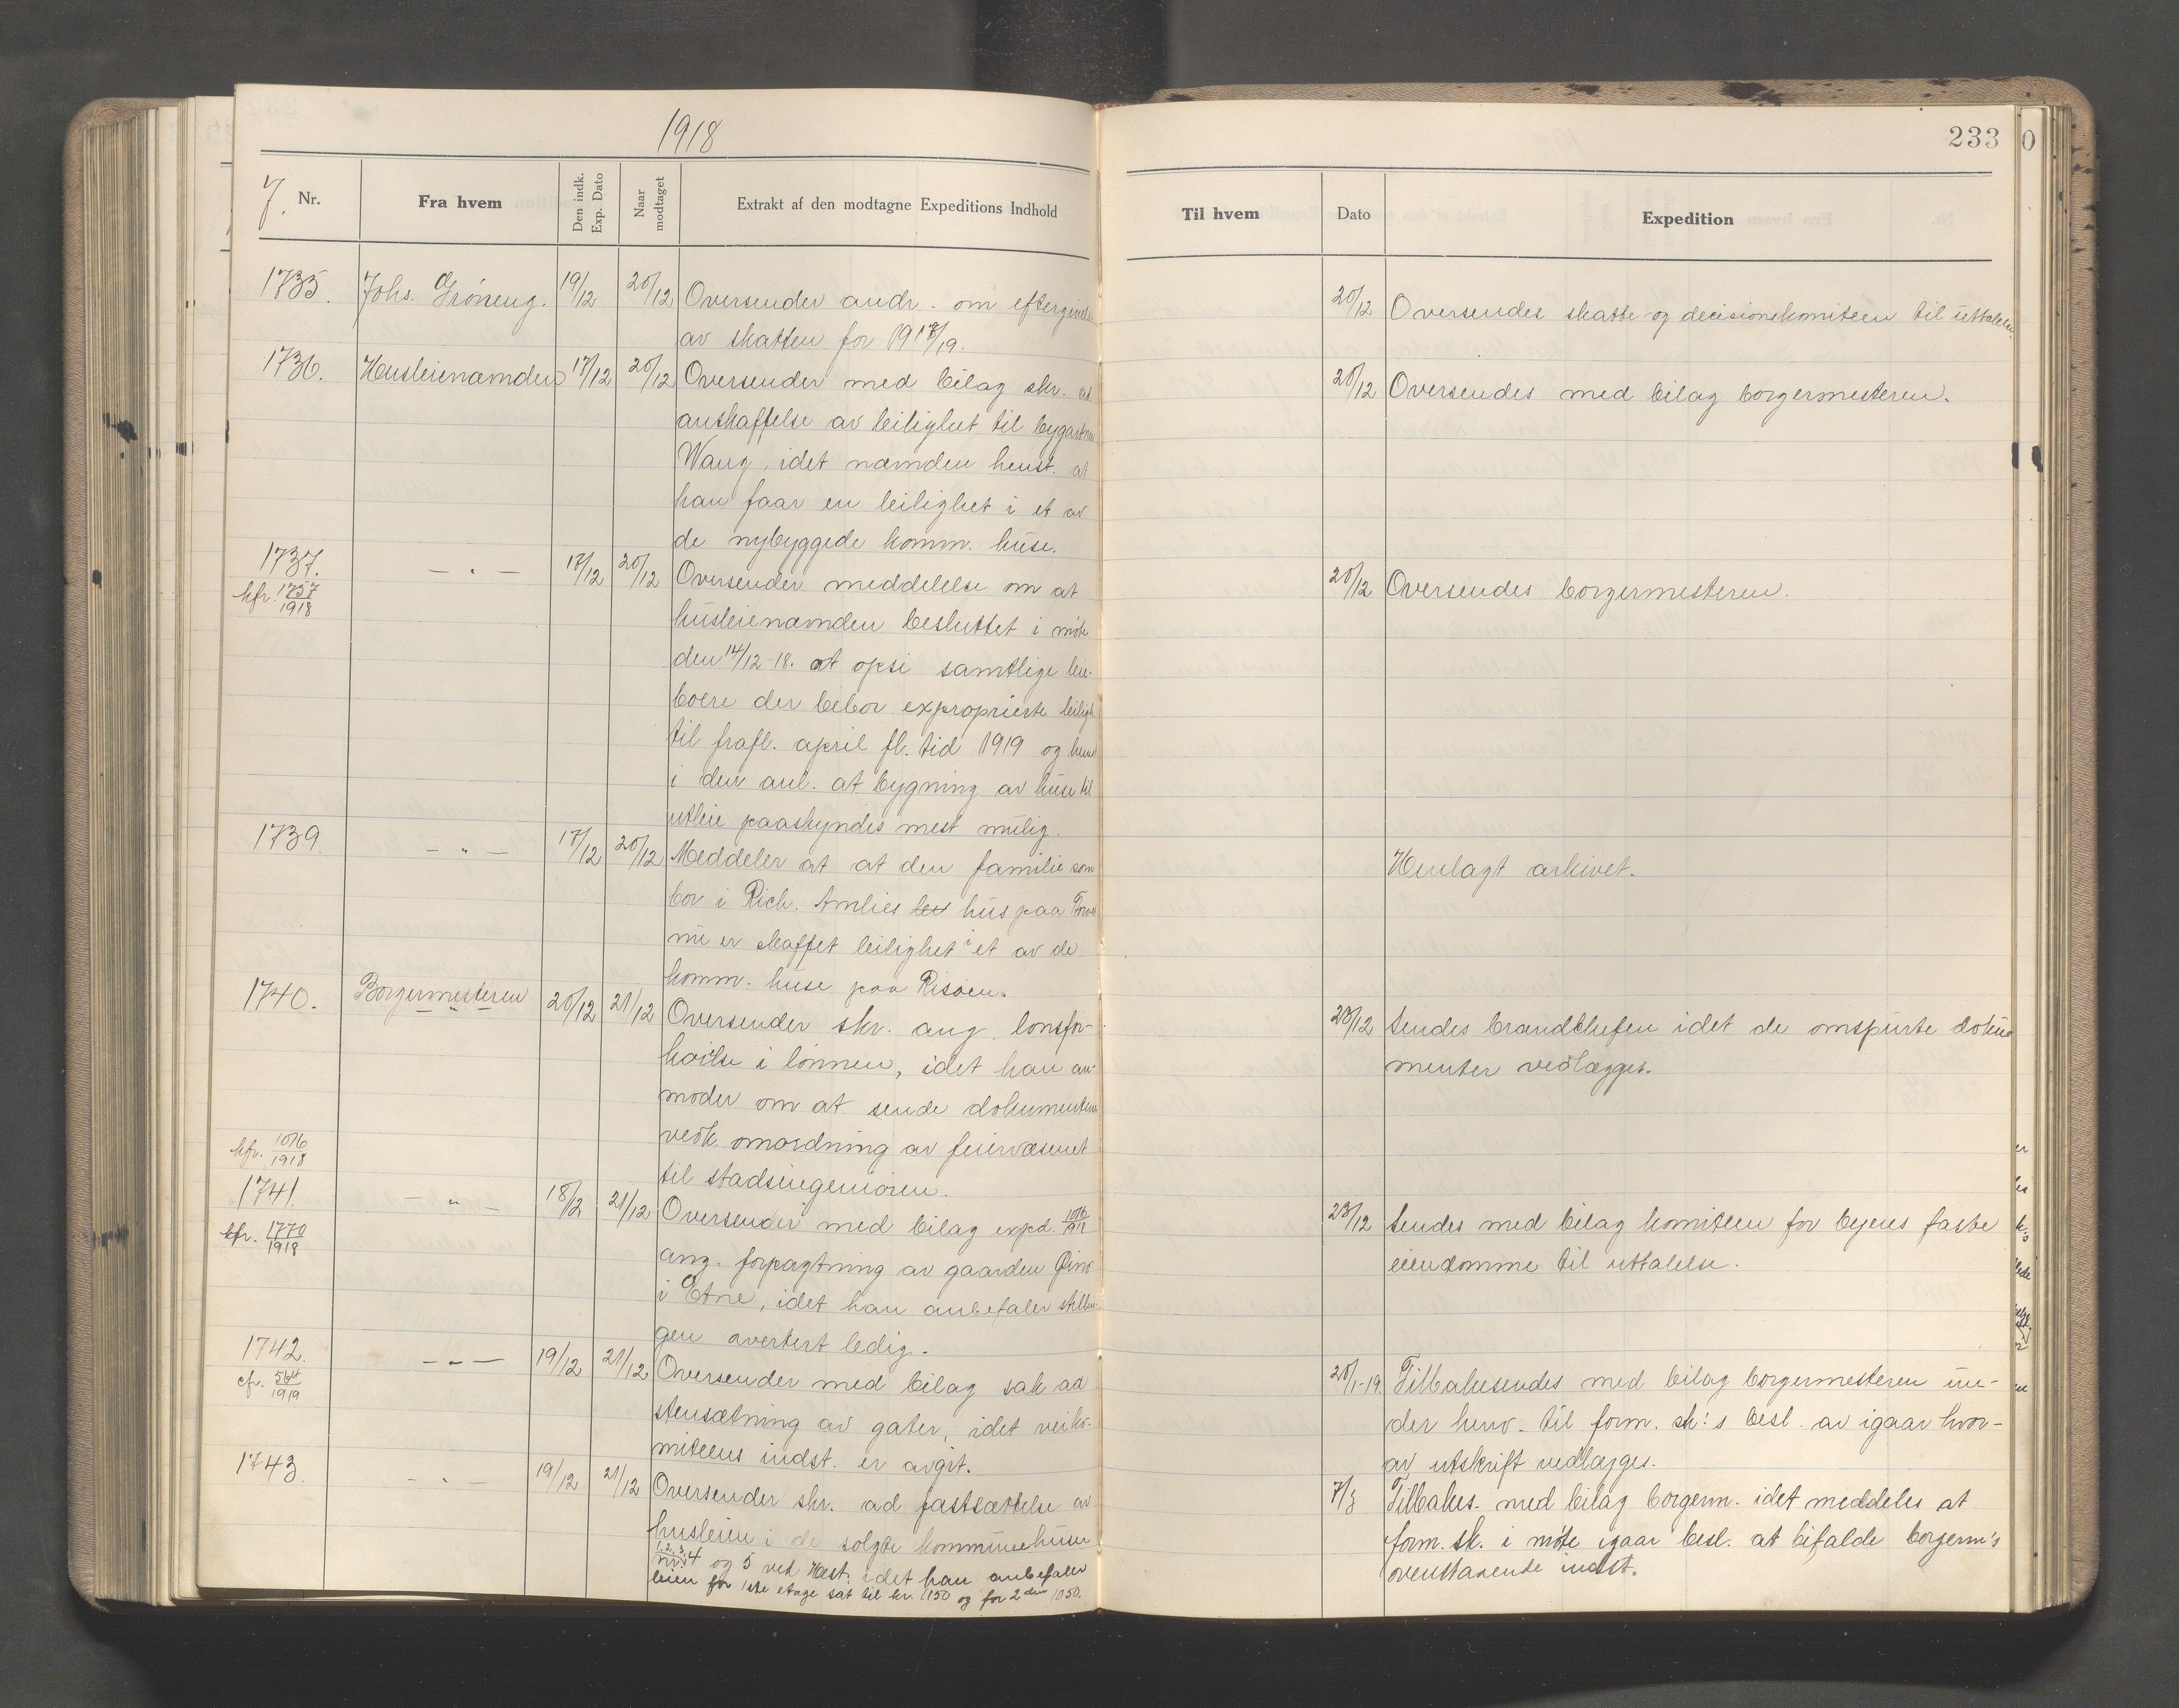 1918
233
J. Nr.
Fra hvem
Den indk. Exp. Dato
Naar modtaget
Extrakt af den modtagne Expeditions Indhold
Til hvem
Dato
Expedition
1735. Johs. Gröneng. 19/12 20/12 Oversender andr. om eftergivelse
av skatten for 1918/19.
20/12 Oversendes skatte- og decisionskomiteen til uttalelse.
1736. Husleienamnden 17/12 20/12 Oversender med bilag skr. ad
anskaffelse av leilighet til bygartner
Wang, idet namnden henst. at
han faar en leilighet i et av
de nybyggede komm. huse.
20/12 Oversendes med bilag borgermesteren.
1737. — " — 17/12 20/12 Oversender meddelelse om at
kfr. 1757/1918
husleienamnden besluttet i möte
den 14/12-18. at opsi samtlige leie-
boere der bebor exproprierte leiligh.
til frafl. april fl. tid 1919 og henst.
i den anl. at bygning av huse til
utleie paaskyndes mest mulig.
20/12 Oversendes borgermesteren.
1739. — " — 17/12 20/12 Meddeler at at den familie som
bor i Rich. Amlies hus paa
nu er skaffet leilighet i et av de
komm. huse paa Risöen.
Henlagt arkivet.
1740. Borgermesteren 20/12 21/12 Oversender skr. ang. lönsfor-
höielse i lönnen, idet han an-
moder om at sende dokumentene
vedk. omordning av feiervæsenet
til stadsingeniören.
kfr. 1076/1918
23/12 Sendes brandchefen idet de omspurte doku-
menter vedlægges.
1741. — " — 18/12 21/12 Oversender med bilag exped. 1076/1918
kfr. 1770/1918
ang. forpagtning av gaarden
i Etne, idet han anbefaler stillin-
gen avertert ledig.
23/12 Sendes med bilag komiteen for byens faste
eiendomme til uttalelse.
1742. — " — 19/12 21/12 Oversender med bilag sak ad
cfr. 564/1919
stensætning av gater, idet veiko-
miteens indst. er avgit.
28/1-19. Tilbakesendes med bilag borgermesteren un-
der henv. til form. sk:s besl. av igaar hvor-
av utskrift vedlægges.
1743. — " — 19/12 21/12 Oversender skr. ad fastsættelse av
husleien i de solgte kommunehuser
nr. 1, 2, 3, 4 og 5 ved Hast. idet han anbefaler
leien for 1ste etage sat til kr. 1150 og for 2den 1050.
7/3 Tilbakes. med bilag borgerm. idet meddeles at
form. sk. i möte igaar besl. at bifalde borgerm's
ovenstaaende indst.